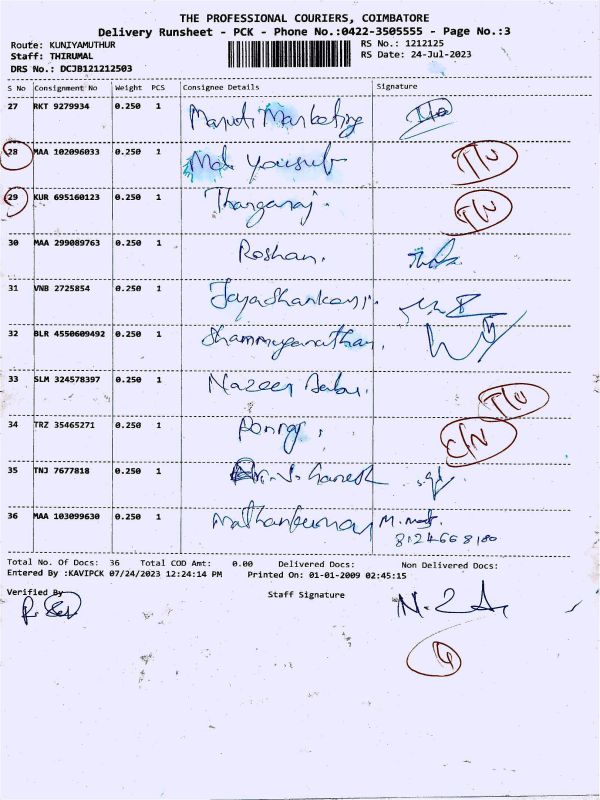 THE PROFESSIONAL COURIERS, COIMBATORE
Delivery Runsheet - PCK - Phone No.:0422-3505555 - Page No.:3
Route: KUNIYAMUTHUR RS No.: 1212125
Staff: THIRUMAL RS Date: 24-Jul-2023
DRS No.: DCJB121212503
S No Consignment No Weight PCS Consignee Details Signature
27 RKT 9279934 0.250 1 Maruti Marketing
28 MAA 102096033 0.250 1 Md. Yousub T/U
29 KUR 695160123 0.250 1 Thangaraj. T/U
30 MAA 299089763 0.250 1 Roshan.
31 VNB 2725854 0.250 1 Jayashankar
32 BLR 4550609492 0.250 1 Shammuganathan.
33 SLM 324578397 0.250 1 Nazeer Babu. T/U
34 TRZ 35465271 0.250 1
35 TNJ 7677818 0.250 1 Ganesh
36 MAA 103099630 0.250 1 Mathankumar M.
8124668180
Total No. Of Docs: 36 Total COD Amt: 0.00 Delivered Docs: Non Delivered Docs:
Entered By :KAVIPCK 07/24/2023 12:24:14 PM Printed On: 01-01-2009 02:45:15
Verified By Staff Signature